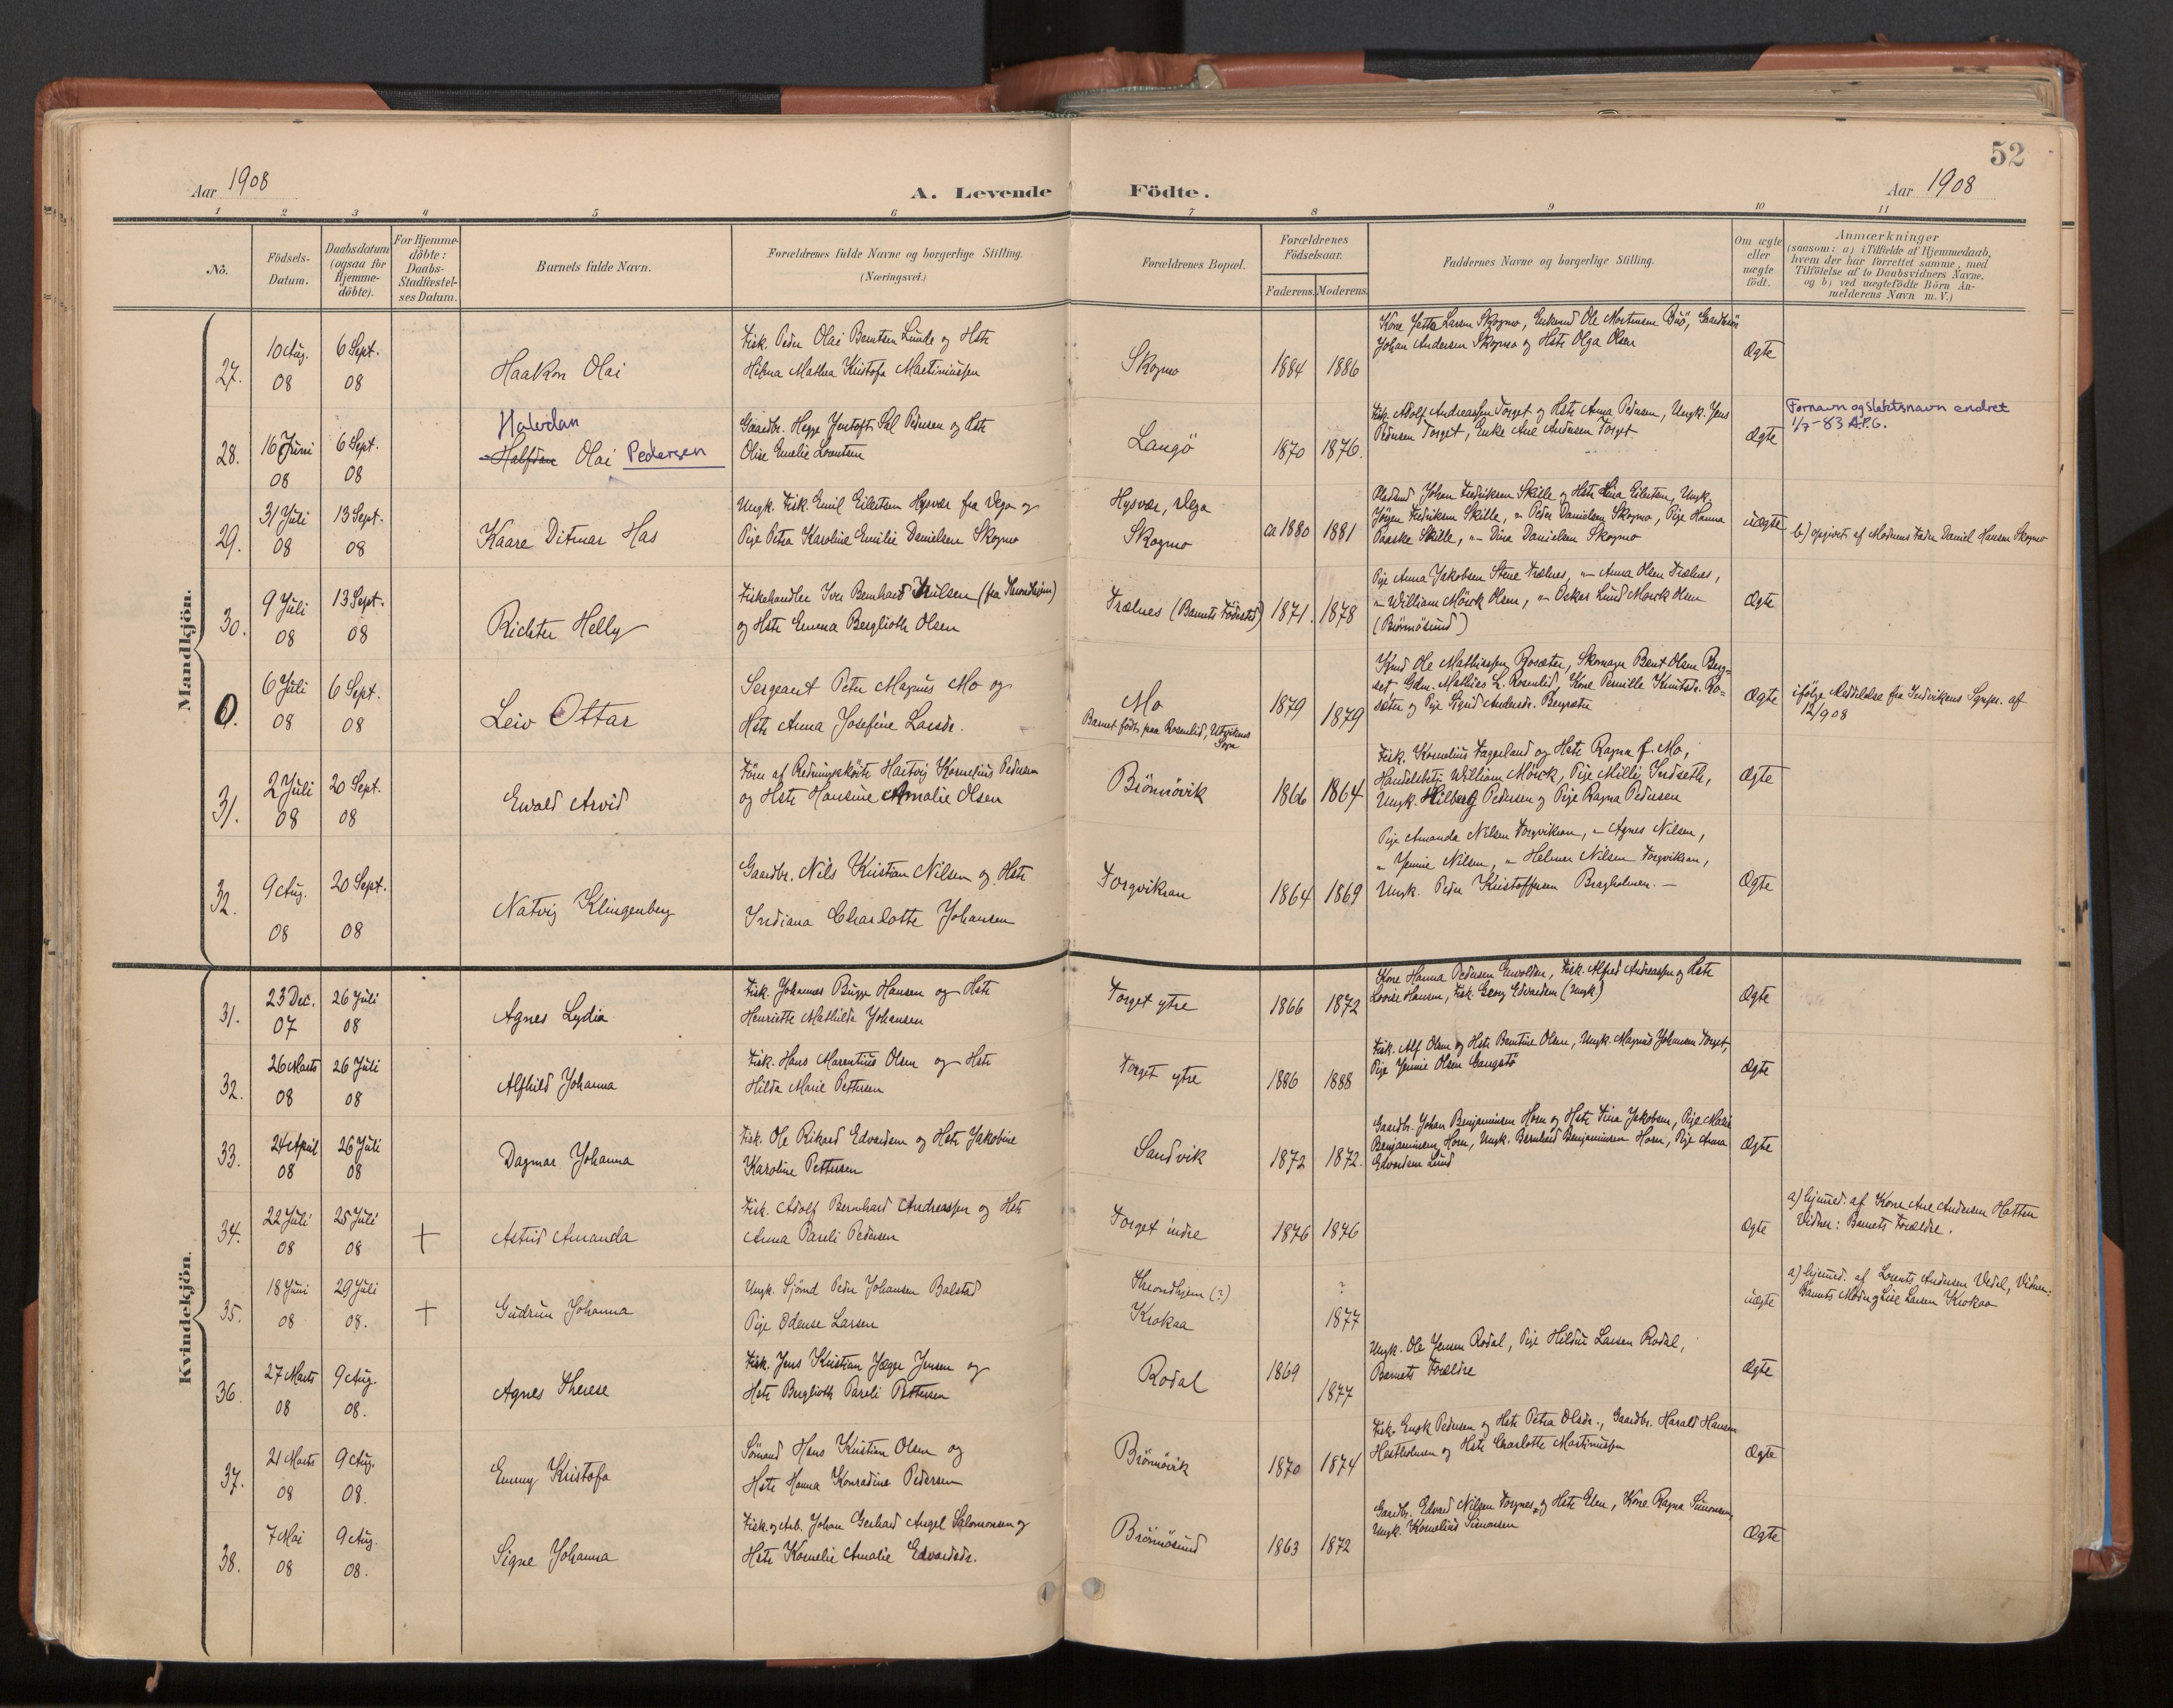 52
Aar 1908
A. Levende Födte.
Aar 1908
1 2 3 4 5 6 7 8 9 10 11
No.
Födsels-Datum.
Daabsdatum (ogsaa for Hjemme-döbte).
For Hjemme-döbte: Daabs-Stadfæstel-ses Datum.
Barnets fulde Navn.
Forældrenes fulde Navne og borgerlige Stilling.
(Næringsvei.)
Forældrenes Bopæl.
Forældrenes Födselsaar.
Faderens. Moderens.
Faddernes Navne og borgerlige Stilling.
Om ægte eller uægte födt.
Anmærkninger
(saasom: a) i Tilfælde af Hjemmedaab,
hvem der har forrettet samme, med
Tilföielse af to Daabsvidners Navne,
og b) ved uægtefödte Börn An-
melderens Navn m. V.)
Mandkjön.
27. 10 Aug. 08 6 Sept. 08
Haakon Olai
Fisk. Peder Olai Berntsen Lunde og Hstr
Hilma Mathea Kristofa Martiniussen
Skogmo 1884 1886
Kone Jette Larsen Skogmo, Enkemd Ole Mortensen Buö,
Johan Andersen Skogmo og Hstr Olga Olsen
Ægte
28. 16 Juni 08 6 Sept. 08
Halvdan
Halfdan Olai Pedersen
Gaardbr. Hegge Jentoft Sal Pedersen og Hstr
Olise Emelie Lorentsen
Langö 1870 1876.
Fisk. Adolf Andreassen Torget og Hstr Anna Pedersen, Ungk. Jens
Pedersen Torget, Enke Ane Andersen Torget
Ægte
Fornavn og slektsnavn endret
1/7-83 A.P.G.
29. 31 Juli 08 13 Sept. 08
Kaare Ditmar Has
Ungk. Fisk. Emil Eilertsen Hysvær fra Vega og
Pige Petra Karoline Emilie Danielsen Skogmo
Hysvær, Vega
Skogmo
ca 1880 1881
Johan Fredriksen Skille og Hstr Lina Eilertsen, Ungk.
Jörgen Fredriksen Skille, " Peder Danielsen Skogmo, Pige Hanna
Paaske Skille, " Dina Danielsen Skogmo
uægte
b) opgivet af Moderens Fader Daniel Hansen Skogmo
30. 9 Juli 08 13 Sept. 08
Richter Helly
Fiskehandler Iver Bernhard Nilsen (fra Trondhjem)
og Hstr Emma Berglioth Olsen
Trælnes (Barnets Födested) 1871. 1878
Pige Anna Jakobsen Stene Trælnes, " Anna Olsen Trælnes,
" William Mörck Olsen, " Oskar Lund Mörck Olsen
(Brönnösund)
Ægte
0. 6 Juli 08 6 Sept. 08
Leiv Ottar
Sergeant Peter Magnus Mo og
Hstr Anna Josefine Larsdr.
Mo
Barnet födt paa Rosenlid, Utvikens Sogn
1879 1879
Ole Mathiassen Rosæter, Skomager Bent Olsen Berg-
set, Gdm. Mathias L. Rosenlid, Kone Pernille Knutsdr. Ro-
sæter og Pige Sigrid Andersdr. Bergsæter
Ægte
ifölge Meddelelse fra Indvikens Sgnpr. af
12/9 08
31. 2 Juli 08 20 Sept. 08
Ewald Arvid
Förer af Redningsköite Hartvig Kornelius Pedersen
og Hstr Hansine Amalie Olsen
Brönnövik 1866 1864
Fisk. Kornelius Fagerland og Hstr Ragna f. Mo,
Handelsbetj. William Mörck, Pige Milly Indseth,
Ungk. Hilberg Pedersen og Pige Ragna Pedersen
Ægte
32. 9 Aug. 08 20 Sept. 08
Natvig Klingenberg
Gaardbr. Nils Kristian Nilsen og Hstr
Indiana Charlotte Johansen
Torgvikran 1864 1869
Pige Amanda Nilsen Torgvikran, " Agnes Nilsen,
" Jennie Nilsen, " Helmer Nilsen Torgvikran,
Ungk. Peder Kristoffersen Bragholmen. —
Ægte
Kvindekjön.
31. 23 Dec. 07 26 Juli 08
Agnes Lydia
Fisk. Johannes Bugge Hansen og Hstr
Henriette Mathilde Johansen
Torget ytre 1866 1872
Kone Hanna Pedersen Envolden, Fisk. Alfred Andreassen og Hstr
Lovise Hansen, Fisk. Georg Edvardsen (Ungk)
Ægte
32. 26 Marts 08 26 Juli 08
Alfhild Johanna
Fisk. Hans Marentius Olsen og Hstr
Hilda Marie Pettersen
Torget ytre 1886 1888
Fisk. Alf Olsen og Hstr Berntine Olsen, Ungk. Magnus Johansen Torget,
Pige Jennie Olsen
Ægte
33. 24 April 08 26 Juli 08
Dagmar Johanna
Fisk. Ole Rikard Edvardsen og Hstr Jakobine
Karoline Pettersen
Sandvik 1872 1872.
Gaardbr. Johan Benjaminsen Horn og Hstr Tina Jakobsen, Pige Marie
Benjaminsen Horn, Ungk. Bernhard Benjaminsen Horn, Pige Anna
Edvardsen Lund
Ægte
34. 22 Juli 08 25 Juli 08 +
Astrid Amanda
Fisk. Adolf Bernhard Andreassen og Hstr
Anna Pareli Pedersen
Torget indre 1876 1876
Ægte
a) hjemmed. af Kone Ane Andersen Hatten
Vidner: Barnets Forældre.
35. 18 Juni 08 29 Juli 08. +
Gudrun Johanna
Ungk. Sjömd Peder Johansen Balstad
Pige Odense Larsen
Throndhjem (?)
Krokaa
? 1877
uægte
a) hjemmed. af Lorents Andersen Vedal, Vidner:
Barnets Moder og Lise Larsen Krokaa
36. 27 Marts 08 9 Aug. 08.
Agnes Therese
Fisk. Jens Kristian Jægge Jensen og
Hstr Berglioth Pareli Pettersen
Rodal 1869 1877
Ungk. Ole Jensen Rodal, Pige Hildur Larsen Rodal,
Barnets Forældre
Ægte
37. 21 Marts 08 9 Aug. 08.
Emmy Kristofa
Sömand Hans Kristian Olsen og
Hstr Hanna Konradine Pedersen
Brönnövik 1870 1874
Fisk. Engk Pedersen og Hstr Petra Olsdr., Gaardbr. Harald Hansen
Hestholmen og Hstr Charlotte Martinussen
Ægte
38. 7 Mai 08 9 Aug. 08.
Signe Johanna
Fisk. og Arb. Johan Gerhard Angel Salomonsen og
Hstr Kornelie Amalie Edvardsdr.
Brönnösund 1863 1872
Gaardbr. Edvard Nilsen Torgnes og Hstr Elen, Kone Ragna Simonsen,
Ungk. Kornelius Simonsen
Ægte